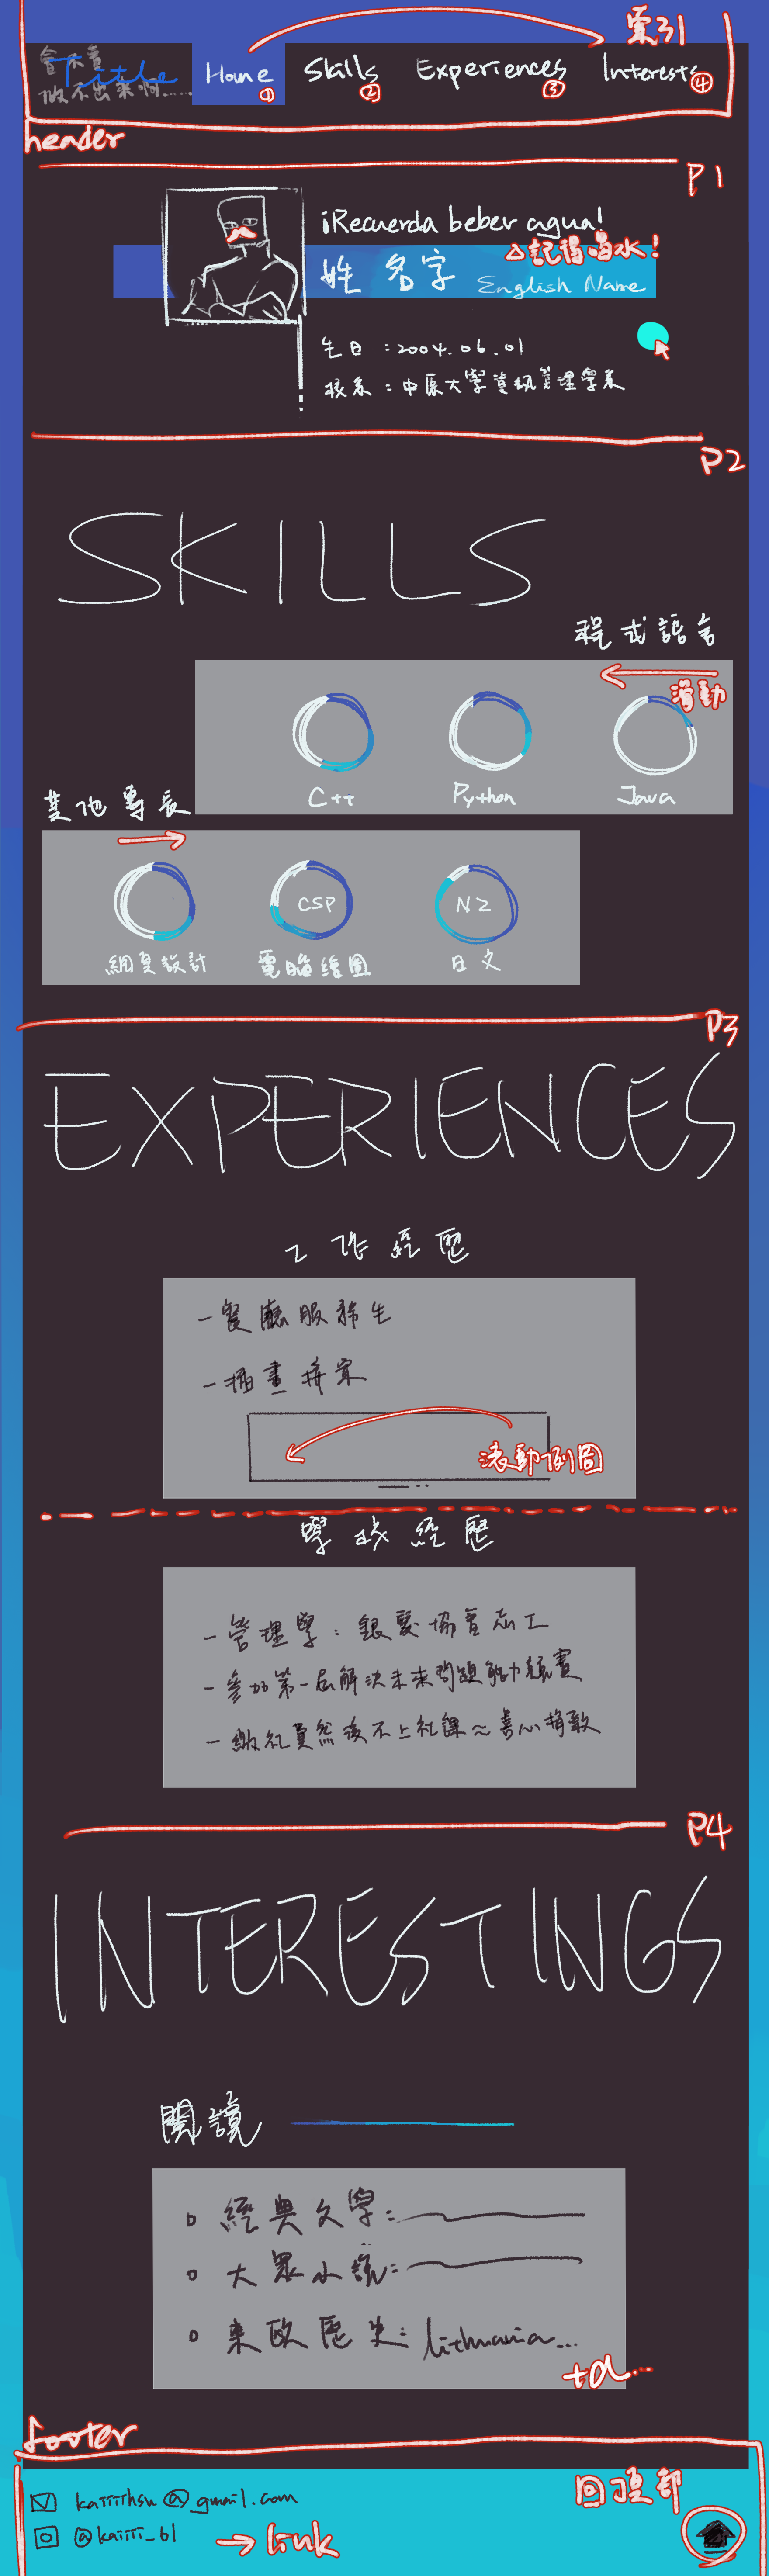 索引
會不會
Title
做不出來啊......
Home
Skills
Experiences
Interests
① ② ③ ④
header
P1
¡Recuerda beber agua!
△記得喝水!
姓名字
English Name
生日:2004.06.01
校系:中原大學資訊管理學系
P2
SKILLS
程式語言
滑動
C++
Python
Java
其他專長
CSP
N2
網頁設計
電腦繪圖
日文
P3
EXPERIENCES
工作經歷
-餐廳服務生
-插畫接案
滾動例圖
學校經歷
-管理學:銀髮協會志工
-參加第一屆解決未來問題能力競賽
-繳社費然後不上社課~善心捐款
P4
INTERESTINGS
閱讀
經典文學:
大眾小說:
東歐歷史:lithuania...
+a...
footer
回頂部
@gmail.com
→ link